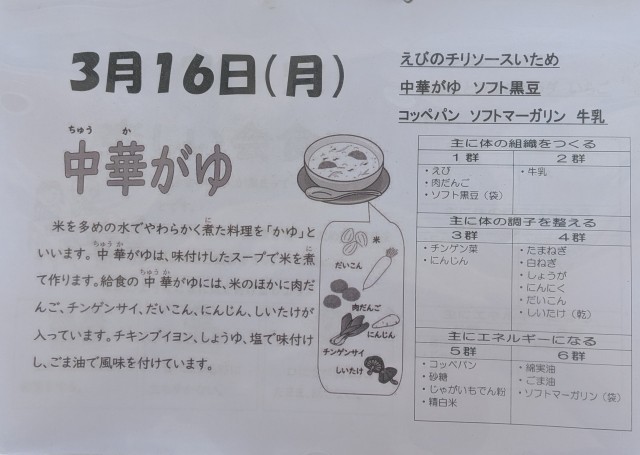 3月16日(月)
えびのチリソースいため
中華がゆ ソフト黒豆
コッペパン ソフトマーガリン 牛乳
ちゅう か
中華がゆ
米を多めの水でやわらかく煮た料理を「かゆ」と
いいます。中華がゆは、味付けしたスープで米を煮
て作ります。給食の中華がゆには、米のほかに肉だ
んご、チンゲンサイ、だいこん、にんじん、しいたけが
入っています。チキンブイヨン、しょうゆ、塩で味付け
し、ごま油で風味を付けています。
米
だいこん
肉だんご
にんじん
チンゲンサイ
しいたけ
主に体の組織をつくる
1群 2群
・えび ・牛乳
・肉だんご
・ソフト黒豆(袋)
主に体の調子を整える
3群 4群
・チンゲン菜 ・たまねぎ
・にんじん ・白ねぎ
・しょうが
・にんにく
・だいこん
・しいたけ(乾)
主にエネルギーになる
5群 6群
・コッペパン ・綿実油
・砂糖 ・ごま油
・じゃがいもでん粉 ・ソフトマーガリン(袋)
・精白米